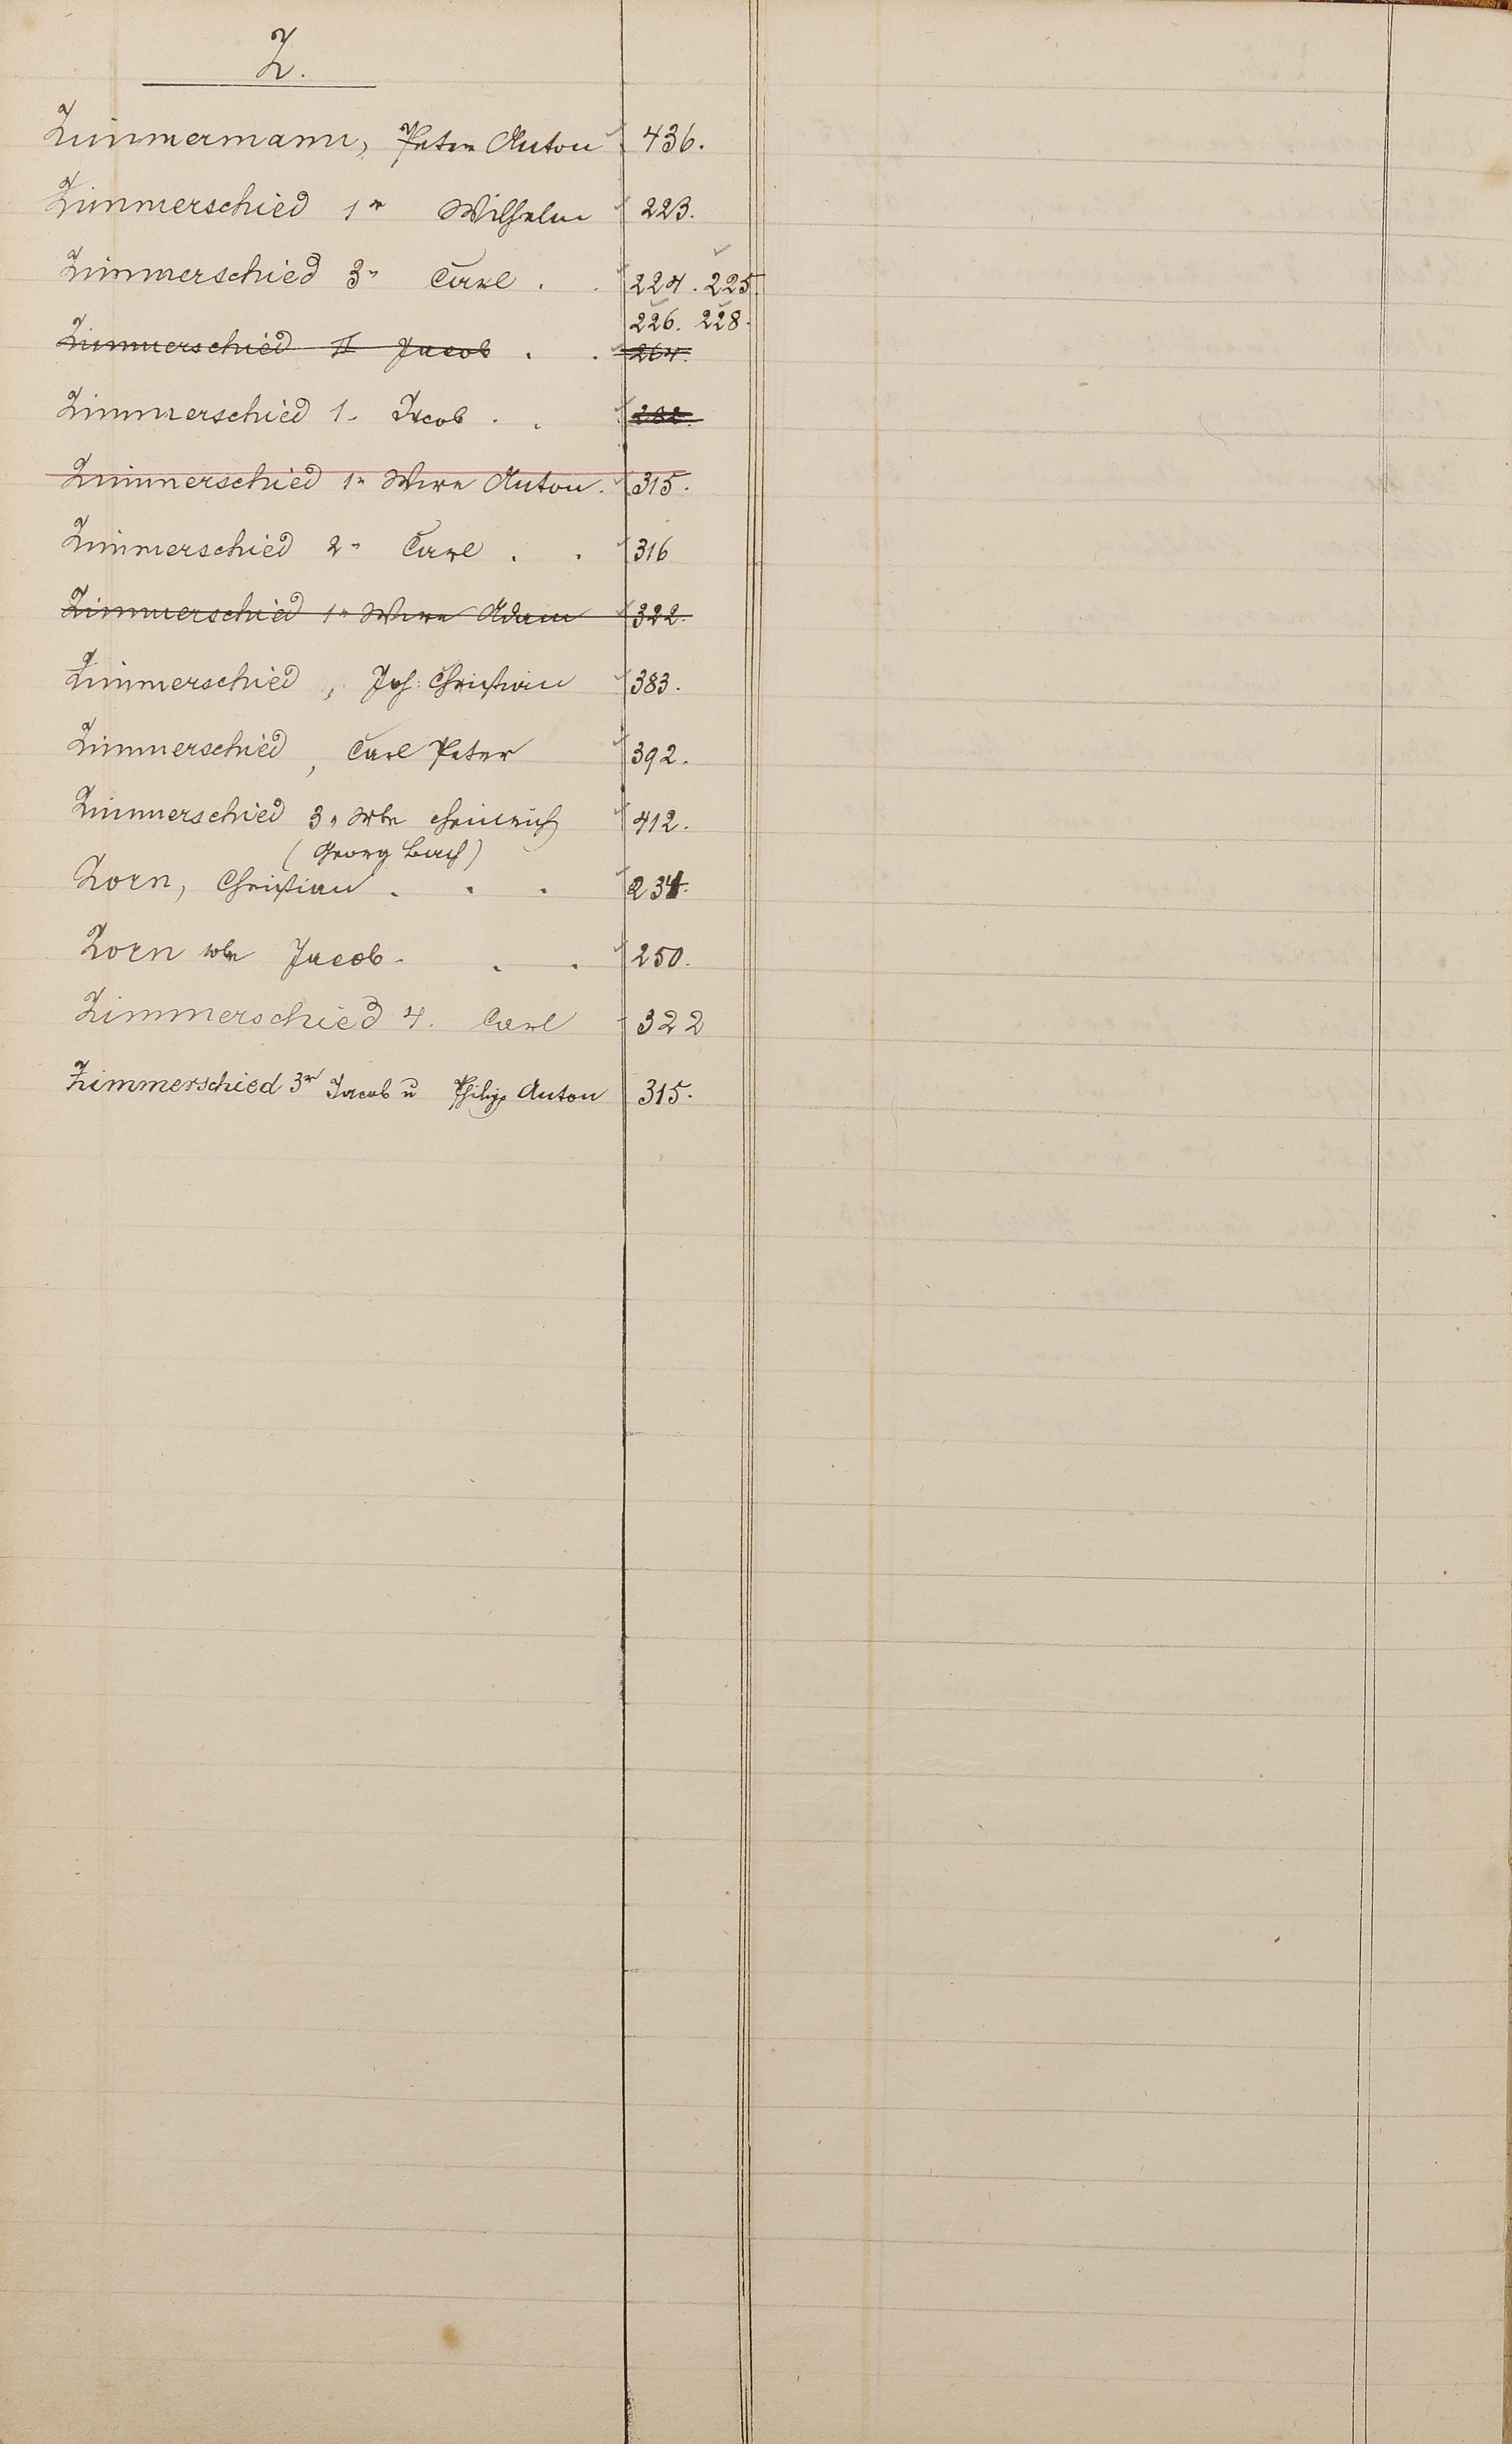 Z.
Zimmermann, Peter Anton 436.
Zimmerschied 1r Wilhelm 223.
Zimmerschied 3r Carl . . 224. 225.
226. 228.
Zimmerschied II Jacob . . 264.
Zimmerschied 1. Jacob . .
Zimmerschied 1r Wwe Anton. 315.
Zimmerschied 2r Carl . . 316
Zimmerschied 1r Wwe Adam 322.
Zimmerschied, Joh: Christian 383.
Zimmerschied, Carl Peter 392.
Zimmerschied 3r Wwe Heinrich 412.
(Georg Bach)
Zorn, Christian . . . 234.
Zorn Wwe Jacob . . . 250.
Zimmerschied 4. Carl 322
Zimmerschied 3r Jacob u Philipp Anton 315.